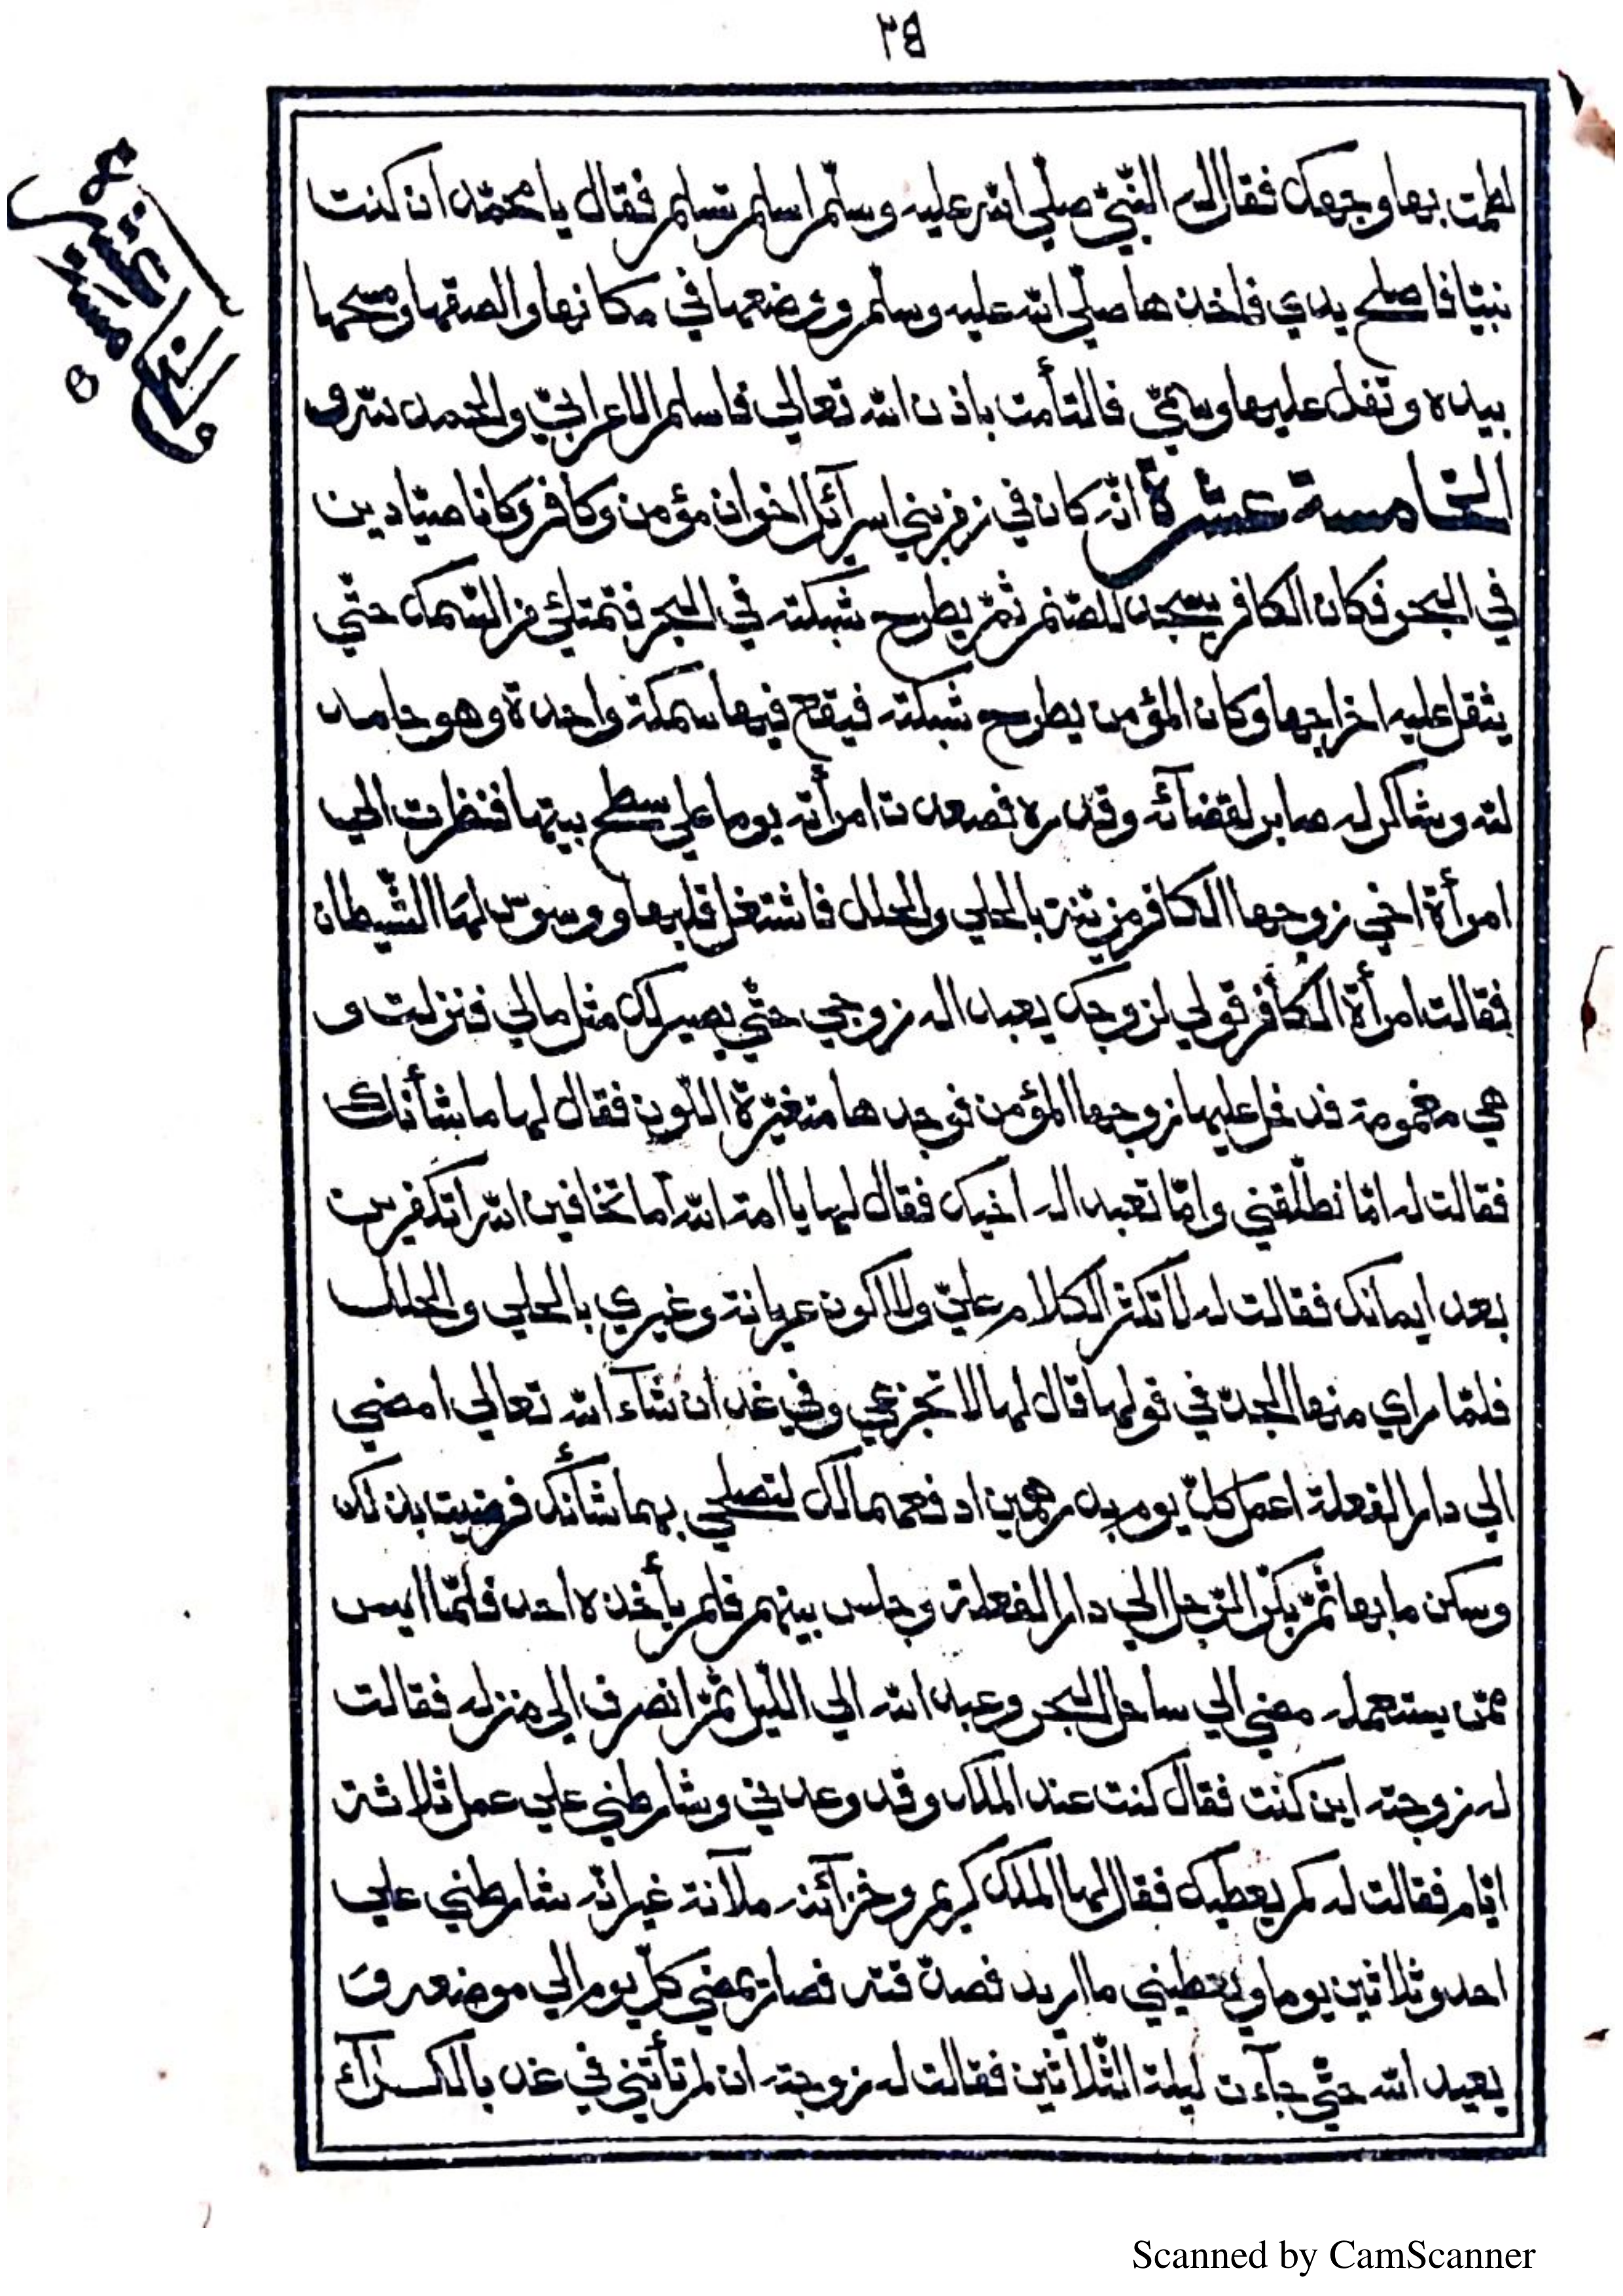 ٣٤
لطمت بها وجهك فقال له النّبيّ صلّي اللّه عليه وسلّم اسلم تسلم فقال يا محمّد ان كنت
نبيّا فاصلح يدي فاخذها صلّي اللّه عليه وسلّم ووضعها في مكانها والصقها ومسحها
بيده وتفل عليها وسمّي فالتأمت باذن اللّه تعالي فاسلم الاعرابيّ والحمد للّه و
الخامسة عشرة انّه كان في زمن بني اسرآئل اخوان مؤمن وكافر وكانا صيّادين
في البحر فكان الكافر يسجد للصّنم ثمّ يطرح شبكته في البحر فتمتلئ من السّمك حتّي
يثقل عليه اخراجها وكان المؤمن يطرح شبكته فيقع فيها سمكة واحدة وهو حامد
للّه وشاكر له صابر لقضآئه وقدره فصعدت امرأته يوما علي سطح بيتها فنظرت الي
امرأة اخي زوجها الكافر مزيّنة بالحلي والحلل فاشتغل قلبها ووسوس لها الشّيطان
فقالت امرأة الكافر قولي لزوجك يعبد اله زوجي حتّي يصير لك مثل مالي فنزلت و
هي مغمومة فدخل عليها زوجها المؤمن فوجدها متغيّرة اللّون فقال لها ما شأنك
فقالت له امّا تطلّقني وامّا تعبد اله اخيك فقال لها يا امة اللّه أما تخافين اللّه أتكفرين
بعد ايمانك فقالت له لا تكثر الكلام عليّ ولا اكون عريانة وغيري بالحلي والحلل
فلمّا راي منها الجدّ في قولها قال لها لا تجزعي وفي غد ان شآء اللّه تعالي امضي
الي دار الفعلة اعمل كلّ يوم بدرهمين ادفعهما لك لتصلحي بهما شأنك فرضيت بذلك
وسكن مابها ثمّ بكّر الرّجل الي دار الفعلة وجلس بينهم فلم يأخذه احد فلمّا ايس
ممّن يستعمله مضي الي ساحل البحر وعبد اللّه الي اللّيل ثمّ انصرف الي منزله فقالت
له زوجته اين كنت فقال كنت عند الملك وقد وعدني وشارطني علي عمل ثلاثة
ايّام فقالت له كم يعطيك فقال لها الملك كريم وخزآئنه ملآنة غير انّه شارطني علي
احد وثلاثين يوما ويعطيني ما اريد فصدّقته فصار يمضي كلّ يوم الي موضعه و
يعبد اللّه حتّي جآءت ليلة الثّلاثين فقالت له زوجته ان لم تأتني في غد بالكسرآء
Scanned by CamScanner